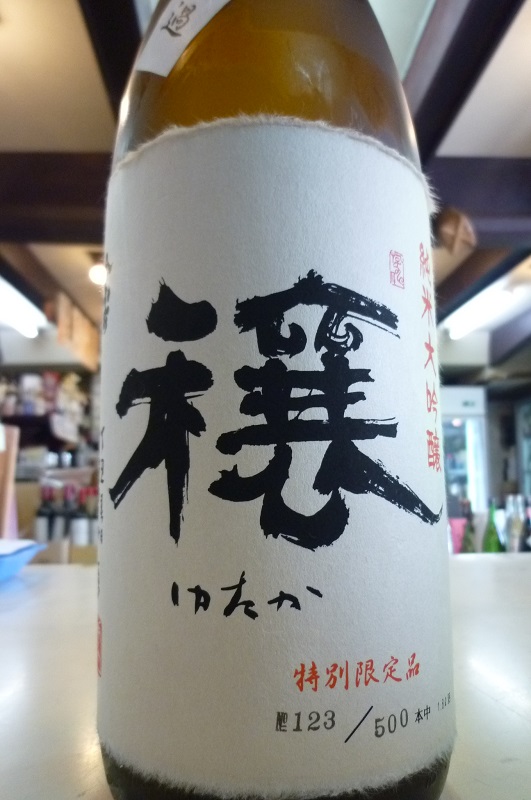 純米大吟醸
穰
ゆたか
特別限定品
123/500本中